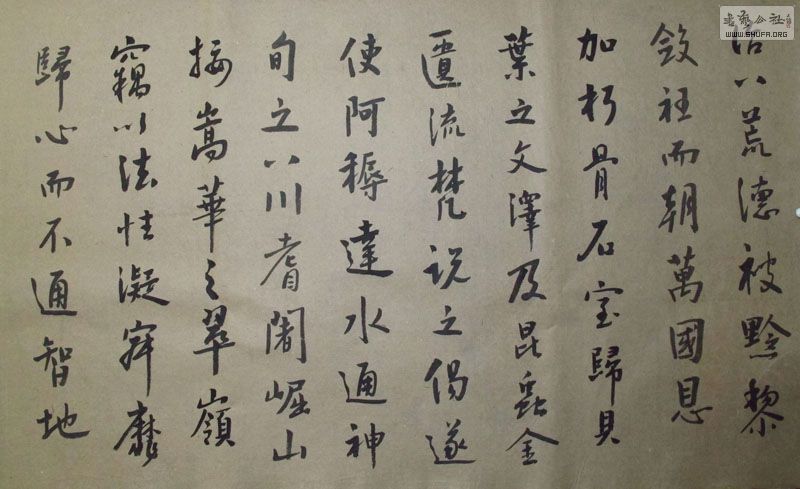 書藝公社
WWW.SHUFA.ORG
治八荒德被黔黎
斂衽而朝萬國恩
加朽骨石室歸貝
葉之文澤及昆蟲金
匱流梵說之偈遂
使阿耨達水通神
甸之八川耆闍崛山
接嵩華之翠嶺
竊以法性凝寂靡
歸心而不通智地